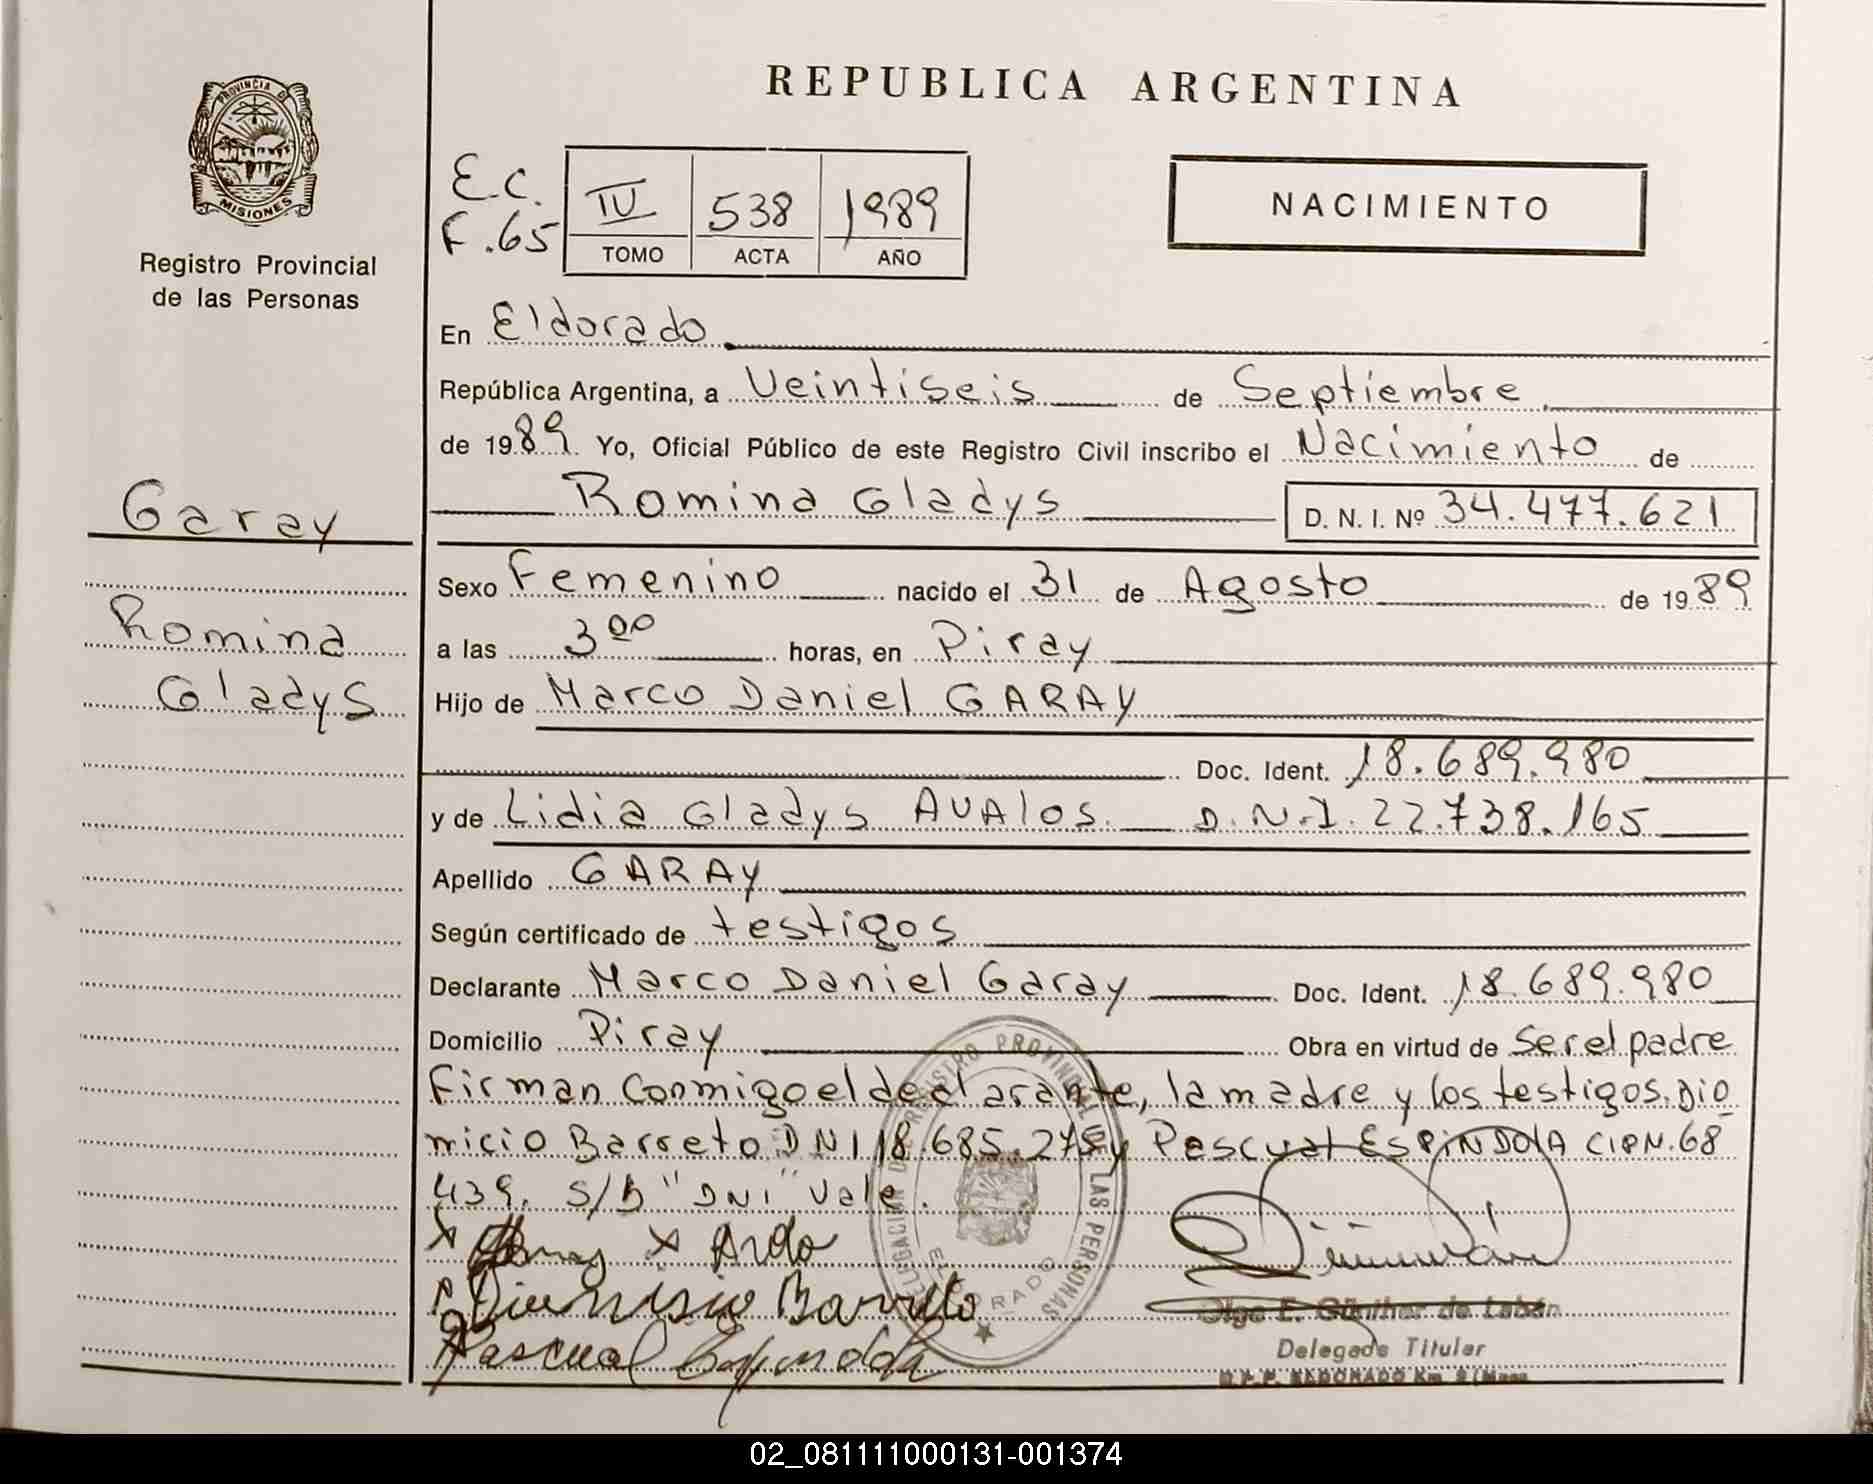 REPUBLICA ARGENTINA
PROVINCIA DE
MISIONES
Registro Provincial
de las Personas
E.C.
F. 65
IV 538 1989
TOMO ACTA AÑO
NACIMIENTO
En Eldorado
República Argentina, a Veintiseis de Septiembre
de 1989 Yo, Oficial Público de este Registro Civil inscribo el Nacimiento de
Garay
Romina Gladys D. N. I. Nº 34.477.621
Sexo Femenino nacido el 31 de Agosto de 1989
Romina
a las 3 00 horas, en Piray
Gladys
Hijo de Marco Daniel GARAY
Doc. Ident. 18.689.980
y de Lidia Gladys AVAlos. D.N.I. 22.738.165
Apellido GARAY
Según certificado de testigos
Declarante Marco Daniel Garay Doc. Ident. 18.689.980
Domicilio Piray Obra en virtud de Ser el padre
Firman Conmigo el declarante, la madre y los testigos. Dio
micio Barreto DNI 18.685.278 y Pascual ESPINDOlA CIPN. 68
439. S/B "DNI" Vale.
Dionisio Barreto
Pascual Espindola
DELEGACION DE REGISTRO PROVINCIAL DE LAS PERSONAS
ELDORADO
Olga E. Günther de Labán
Delegada Titular
ELDORADO Km. 9
02_081111000131-001374